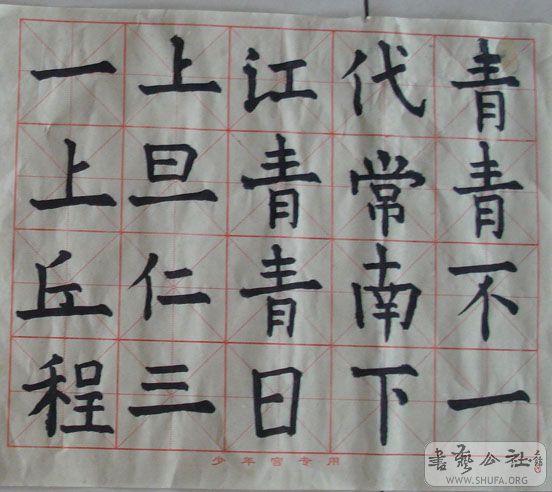 青青不一
代常南下
讧青青日
上旦仁三
一上丘程
少年宫专用
書藝公社
WWW.SHUFA.ORG